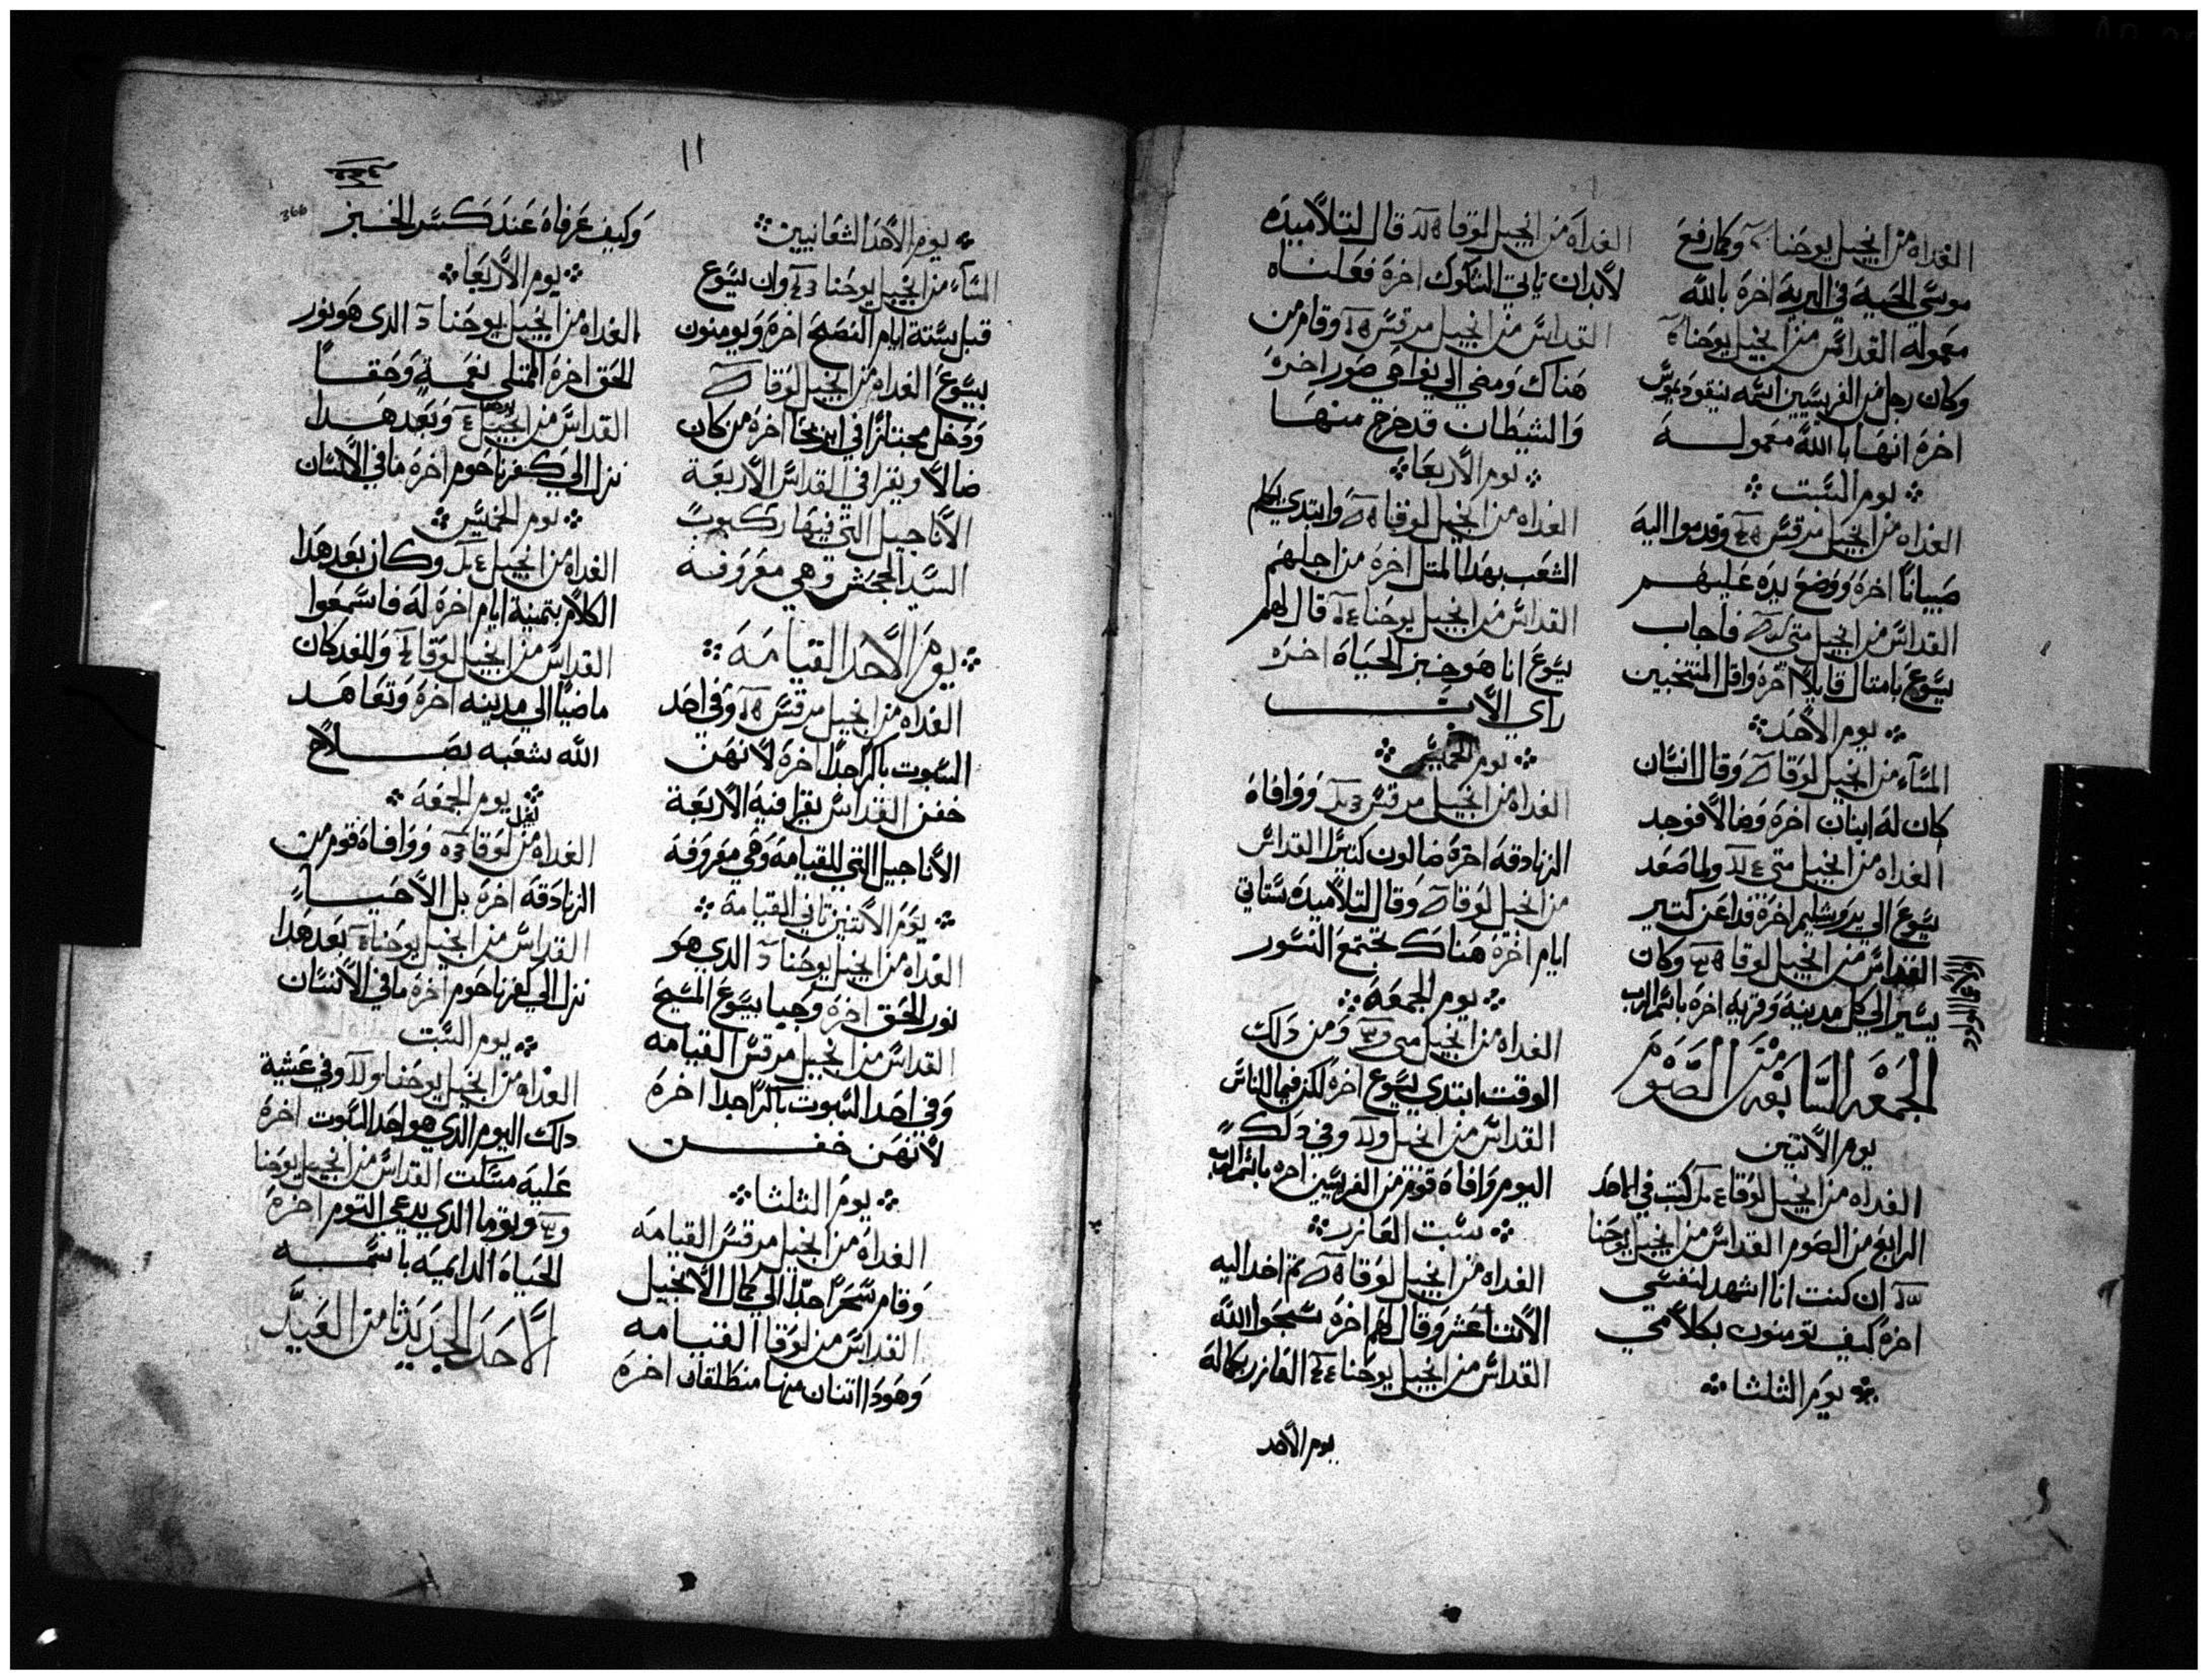 الغداه من انجيل يوحنا وكما رفع
موسى الحية في البرية اخرة بالله
معموله القداس من انجيل يوحنا
وكان رجل من الفريسيين اسمه نيقوديموس
اخرة انها بالله معموله
يوم السبت
الغداه من انجيل مرقس وقدموا اليه
صبيانا اخرة ووضع يده عليهم
القداس من انجيل متى فاجاب
يسوع بامثال قايلا اخرة واقل المنتخبين
يوم الاحد
المساء من انجيل لوقا وقال انسان
كان له ابنان اخرة وضالا فوجد
الغداه من انجيل متى ولما صعد
يسوع الى يروشليم اخرة فدا عن كتير
القداس من انجيل لوقا وكان
يسير الي كل مدينة وقرية اخرة باسم الرب
الجمعة السابعة من الصوم
يوم الاتنين
الغداه من انجيل لوقا كتبت في الاحد
الرابع من الصوم القداس من انجيل يوحنا
ان كنت انا اشهد لنفسي
اخرة كيف تومنون بكلامي
يوم الثلثا
الغداه من انجيل لوقا قال لتلاميده
لابد ان ياتي الشكوك اخرة فعلناه
القداس من انجيل مرقس وقام من
هناك ومضي الي نواحي صور اخرة
والشيطان قد خرج منها
يوم الاربعا
الغداه من انجيل لوقا وابتدي يكلم
الشعب بهدا المتل اخرة من اجلهم
القداس من انجيل يوحنا قال لهم
يسوع انا هو خبز الحياة اخره
راي الاب
يوم الخميس
الغداه من انجيل مرقس ووافاة
الزنادقة اخرة ضالون كتيرا القداس
من انجيل لوقا وقال لتلاميده ستاتي
ايام اخرة هناك تجتمع النسور
يوم الجمعة
الغداه من انجيل متى ومن دلك
الوقت ابتدي يسوع اخرة لكن فيما للناس
القداس من انجيل وفي دلك
اليوم وافاة قوم من الفريسيين اخره باسم الرب
سبت العازر
الغداه من انجيل لوقا تم اخد اليه
الاتنا عشر وقال لهم اخرة سبحوا الله
القداس من انجيل يوحنا العازر بكاله
يوم الاحد
11
يوم الاحد الشعانيين
المساء من انجيل يوحنا وان يسوع
قبل ستة ايام الفصح اخرة ويومنون
بيسوع الغداه من انجيل لوقا
ودخل مجتازا في اريحا اخرة من كان
ضالا ويقرا في القداس الاربعة
الاناجيل التي فيها ركوب
السيد الجحش وهي معروفه
يوم الاحد القيامة
الغداه من انجيل مرقس وفي احد
السبوت باكرا جدا اخرة لانهن
خفن القداس يقرا فيه الاربعة
الاناجيل التي للقيامة وهي معروفة
يوم الاتنين تاني القيامة
الغداه من انجيل يوحنا الدي هو
نور الحق اخرة وجيا بيسوع المسيح
القداس من انجيل مرقس القيامه
وفي احد السبوت باكرا جدا اخرة
لانهن خفن
يوم الثلثا
الغداه من انجيل مرقس القيامة
وقام سحرا جدا الي كمال الانجيل
القداس من لوقا القيامه
وهودا اتنان منها منطلقان اخرة
366
وكيف عرفاة عند كسر الخبز
يوم الاربعا
الغداه من انجيل يوحنا الدى هو نور
الحق اخرة الممتلي نعمة وحقا
القداس من انجيل وبعد هدا
نزل الي كفرناحوم اخرة ما في الانسان
يوم الخميس
الغداه من انجيل وكان بعد هدا
الكلام بتمنية ايام اخرة له فاسمعوا
القداس من انجيل لوقا والغد كان
ماضيا الي مدينه اخرة وتعاهد
الله شعبه بصلاح
يوم الجمعة
الغداه من لوقا ووافاة قوم من
الزنادقة اخرة بل الاحيا
القداس من انجيل يوحنا بعد هدا
نزل الي كفرناحوم اخرة ما في الانسان
يوم السبت
الغداه من انجيل يوحنا وفي عشية
دلك اليوم الدي هو احد السبوت اخرة
عليه مسكت القداس من انجيل يوحنا
وتوما الدي يدعي التوم اخرة
الحياة الدايمة باسمه
الاحد الجديد تامن العيد